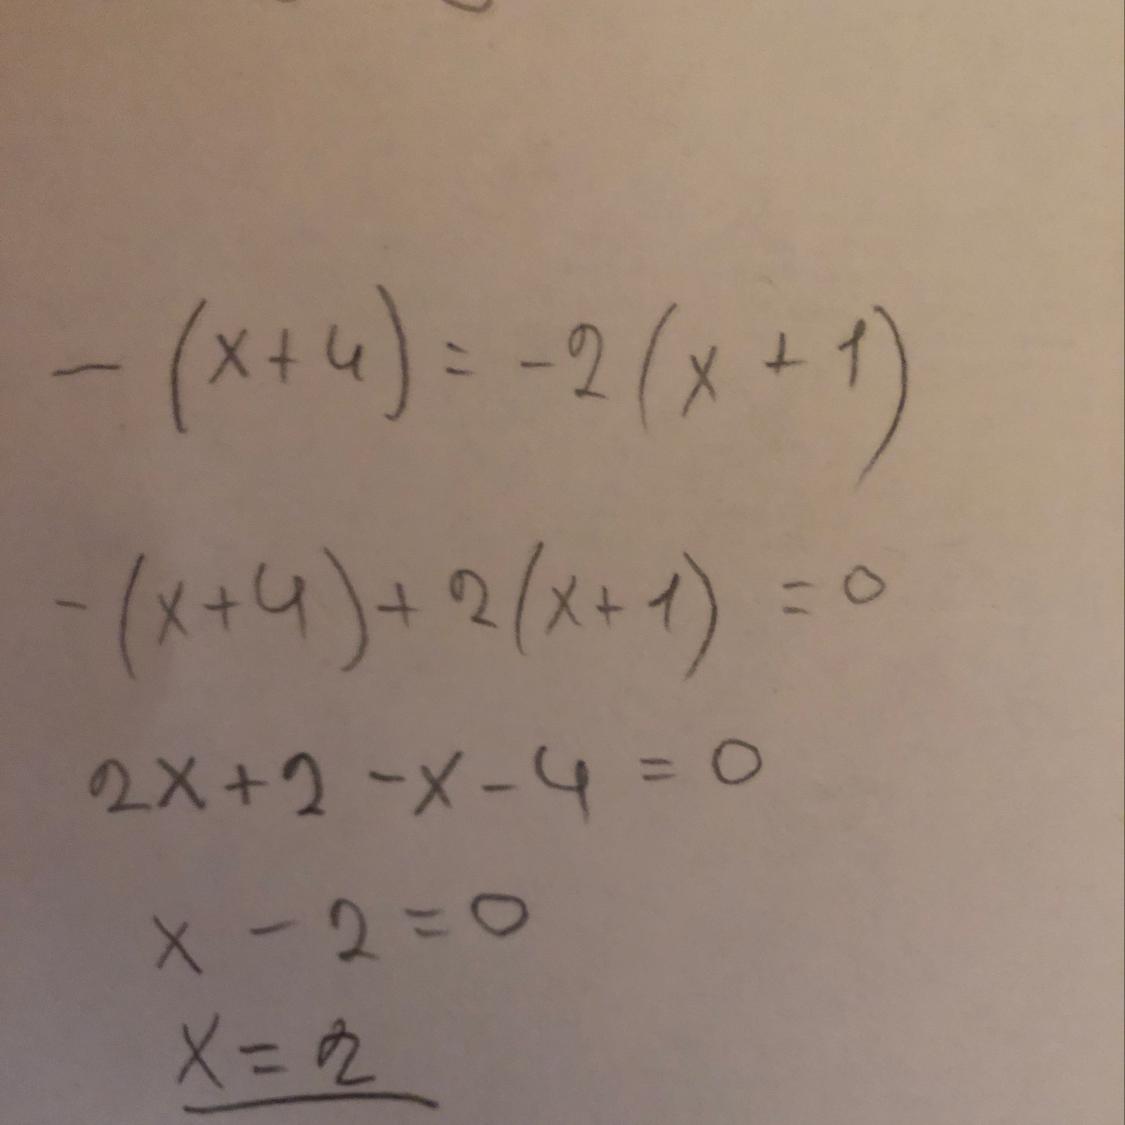 - (x+4) = -2 (x + 1)
- (x+4) + 2 (x+1) = 0
2x + 2 - x - 4 = 0
x - 2 = 0
x = 2